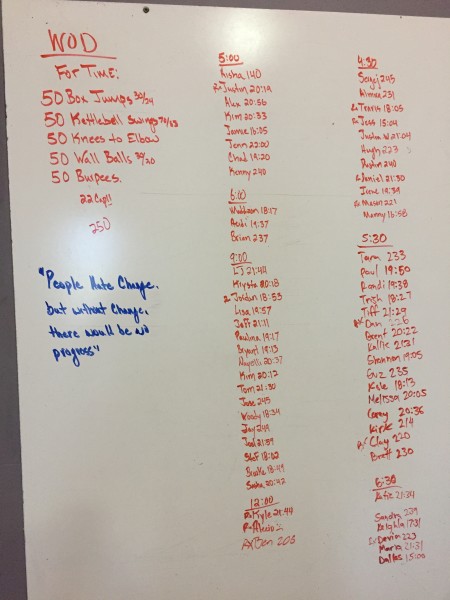 WOD
For Time:
50 Box Jumps 30/24
50 Kettlebell Swings 70/53
50 Knees to Elbow
50 Wall Balls 30/20
50 Burpees.
22 Cap!!
250
"People Hate Change.
but without change,
there would be no
progress"
5:00
Aisha 140
Rx Justin 20:19
Alex 20:56
Kim 20:33
16:05
Jenn 22:00
Chad 19:20
Kenny 240
6:00
Maddison 18:17
19:37
Brian 237
9:00
LJ 21:44
Krysta 20:18
Rx Jordan 18:53
Lisa 19:57
Jeff 21:11
Paulina 19:17
Bryant 18:13
20:37
Kim 20:12
Tom 21:30
Jose 245
Woody 18:34
Jay 249
21:59
Stef 18:02
Blake 18:49
Sasha 20:42
12:00
Rx Kyle 21:44
Rx
Rx Ben 203
4:30
Sergej 245
Aimee 231
Rx Travis 18:05
Rx Jess 15:04
Justin W 21:04
Hugh 223
Dustin 240
Rx Daniel 21:30
June 19:39
Rx Mason 221
Manny 16:58
5:30
Tara 233
Paul 19:50
Randi 19:38
Trish 18:27
Tiff 21:29
Rx Dan 226
Brent 20:22
Kallie 21:31
Shannon 19:05
Guz 235
Kyle 18:13
Melissa 20:05
Corey 20:36
Kirk 214
Rx Clay 220
Brett 230
6:30
Katie 21:34
Sandra 239
Keighla 17:31
Rx Devin 223
Maria 21:31
Dallas 15:00